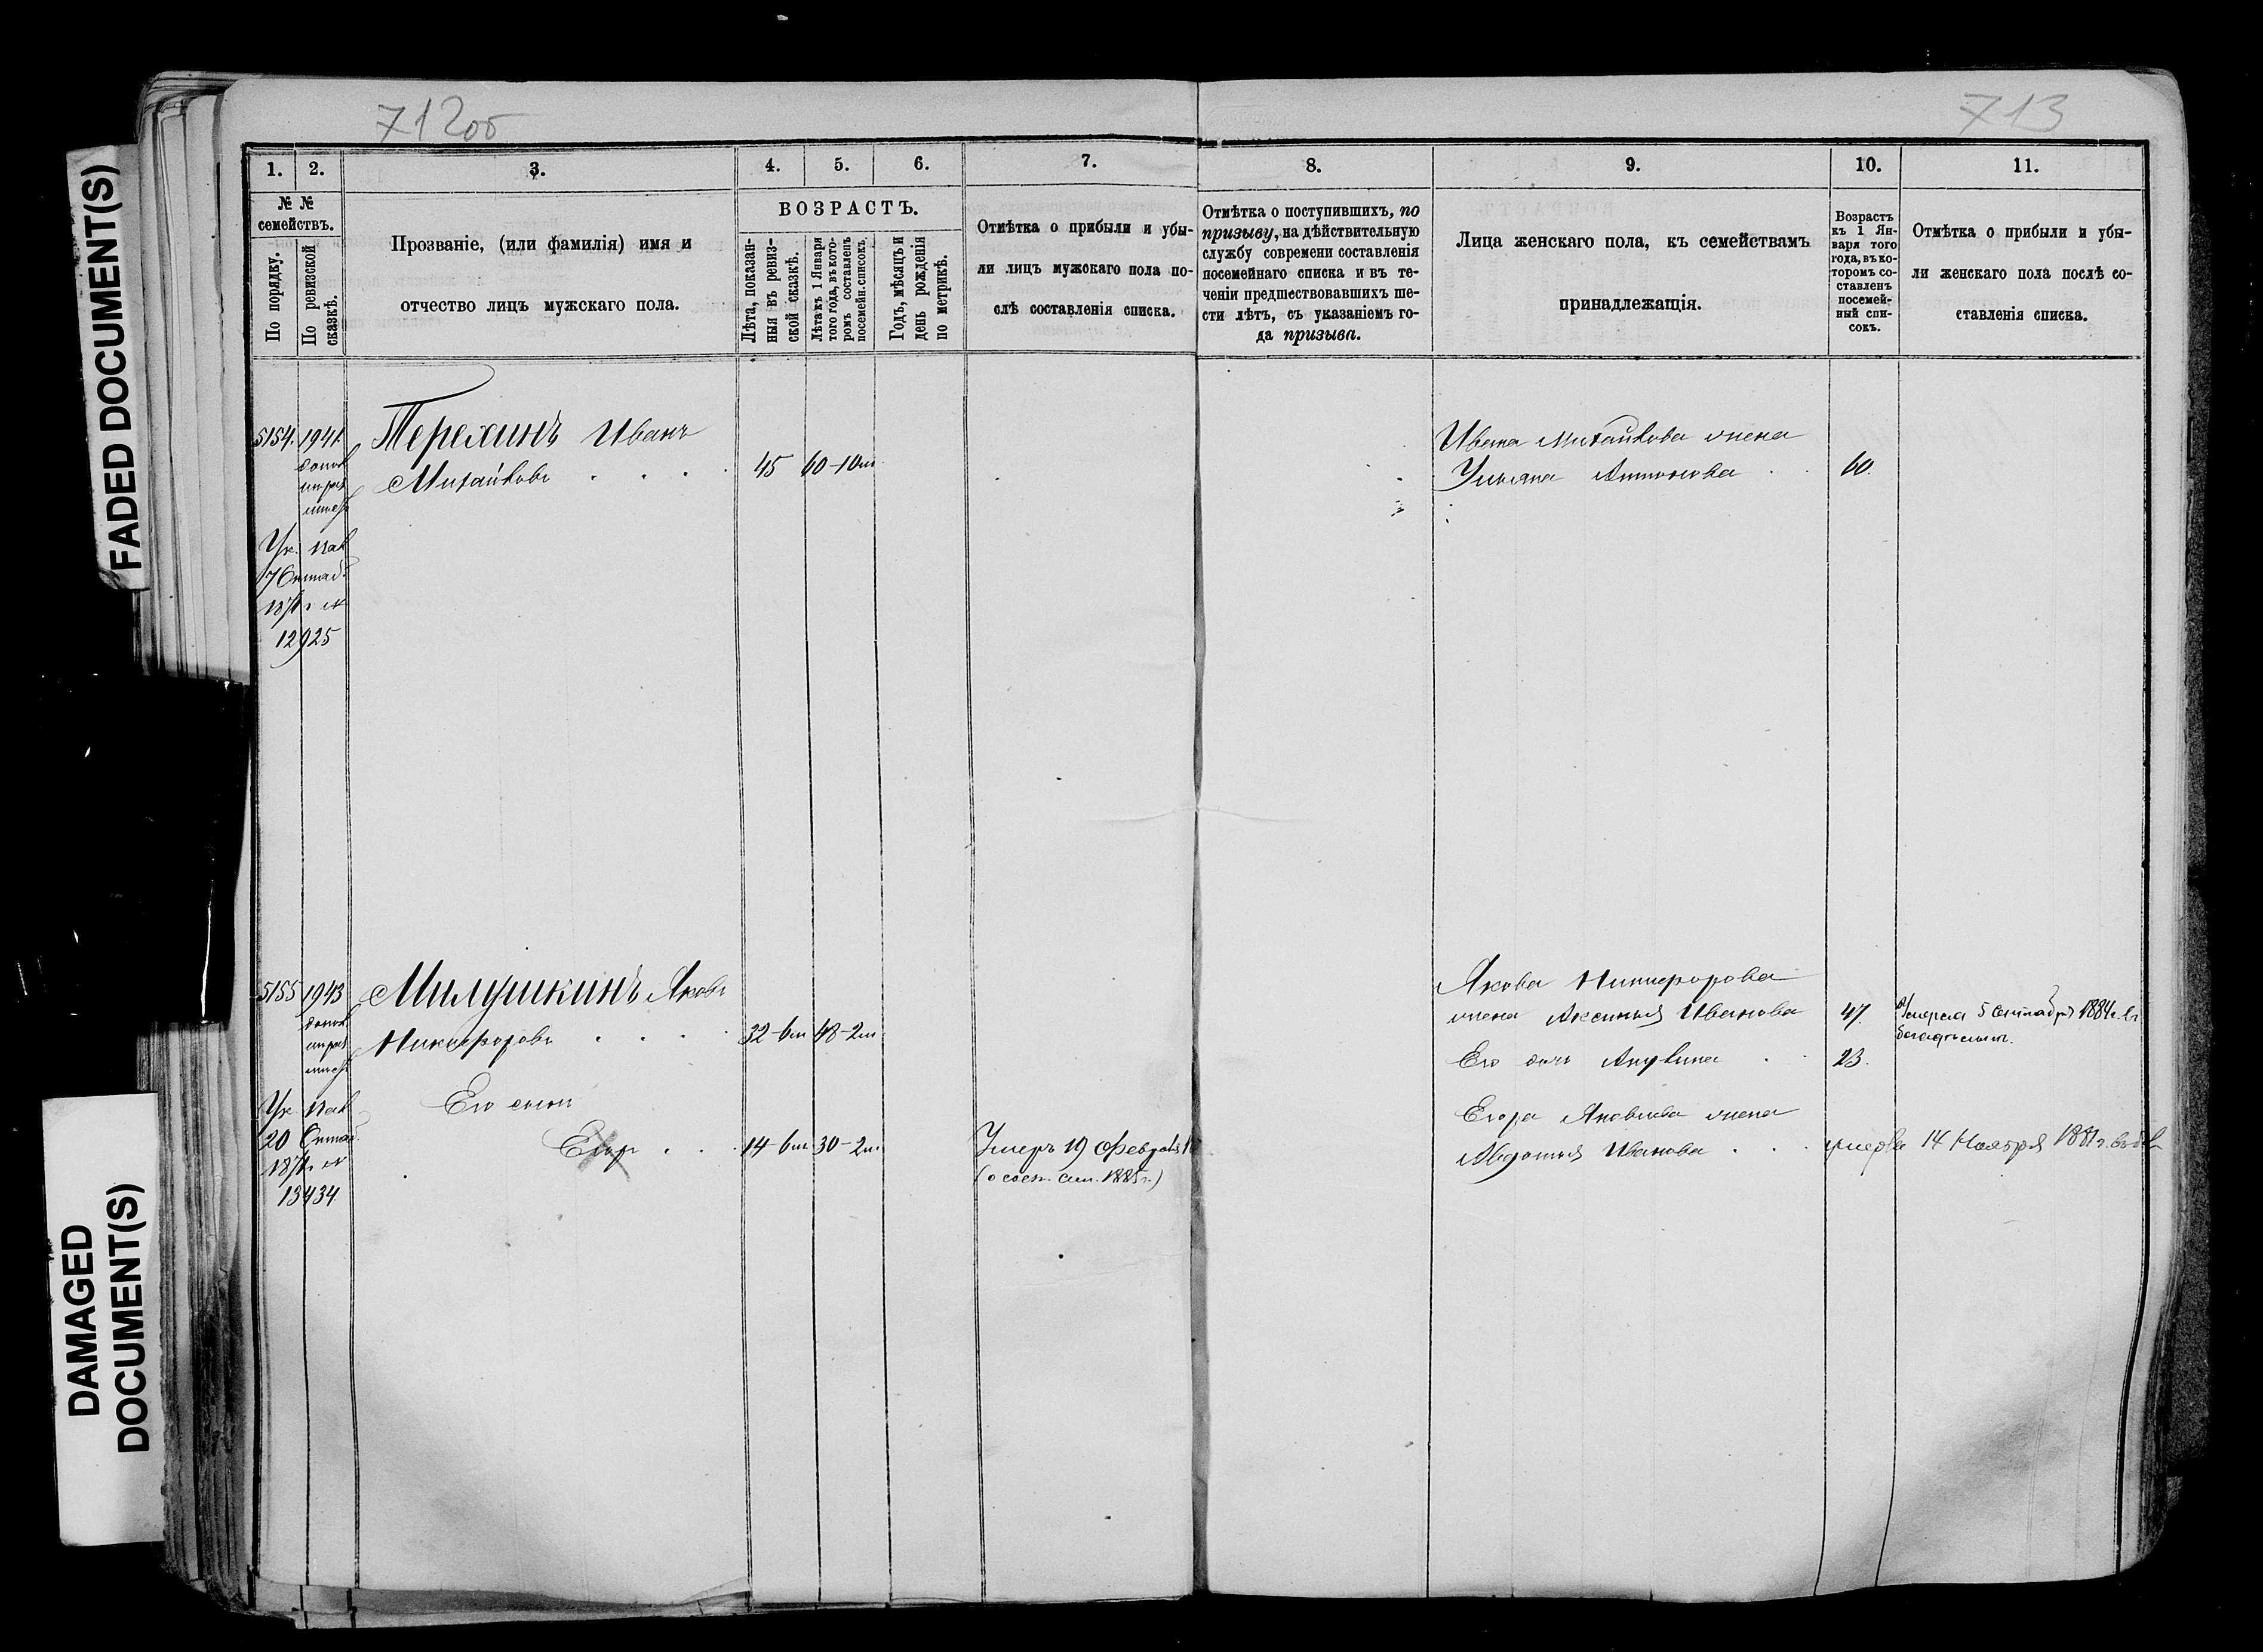 FADED DOCUMENT(S)
DAMAGED
DOCUMENT(S)
712об
713
1.
2.
3.
4.
5.
6.
7.
8.
9.
10.
11.
№ №
семействъ.
По порядку.
По ревизской
сказкѣ.
Прозваніе, (или фамилія) имя и
отчество лицъ мужскаго пола.
ВОЗРАСТЪ.
Лѣта, показан-
ныя въ ревиз-
ской сказкѣ.
Лѣта къ 1 Января
того года, въ кото-
ромъ составленъ
посемейн. списокъ.
Годъ, мѣсяцъ и
день рожденія
по метрикѣ.
Отмѣтка о прибыли и убы-
ли лицъ мужскаго пола по-
слѣ составленія списка.
Отмѣтка о поступившихъ, по
призыву, на дѣйствительную
службу современи составленія
посемейнаго списка и въ те-
ченіи предшествовавшихъ ше-
сти лѣтъ, съ указаніемъ го-
да призыва.
Лица женскаго пола, къ семействамъ
принадлежащія.
Возрастъ
къ 1 Ян-
варя того
года, въ ко-
торомъ со-
ставленъ
посемей-
ный спи-
сокъ.
Отмѣтка о прибыли и убы-
ли женскаго пола послѣ со-
ставленія списка.
5154. 1941. Терехинъ Иванъ
Михайловъ . . . . 45 60-10м
Ук. пал
12925
Ивана Михайлова жена
Ульяна Антонова . . 60.
5155 1943 Милушкинъ Яковъ
Никифоровъ . . . . 32-6м 48-2м
Ук. пал
20 Октяб
13434
Его сынъ
Егоръ . . . 14-6м 30-2м. Умеръ 19 Февраля
Якова Никифорова
жена Аксинья Иванова 47. Умерла 5 Сентября 1884г. въ
Его дочь Акулина . . 23.
Егора Яковлева жена
Авдотья Иванова . . . умерла 14 Ноября 1881г.